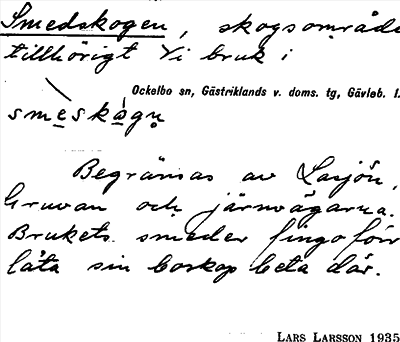 Smedskogen, skogsområde
tillhörigt Vi bruk i
Ockelbo sn, Gästriklands v. doms. tg, Gävleb. l.
smeskógu̥
Begränsas av Lasjön,
Gruvan och järnvägarna.
Brukets smeder fingo förr
låta sin boskap beta där.
LARS LARSSON 1935